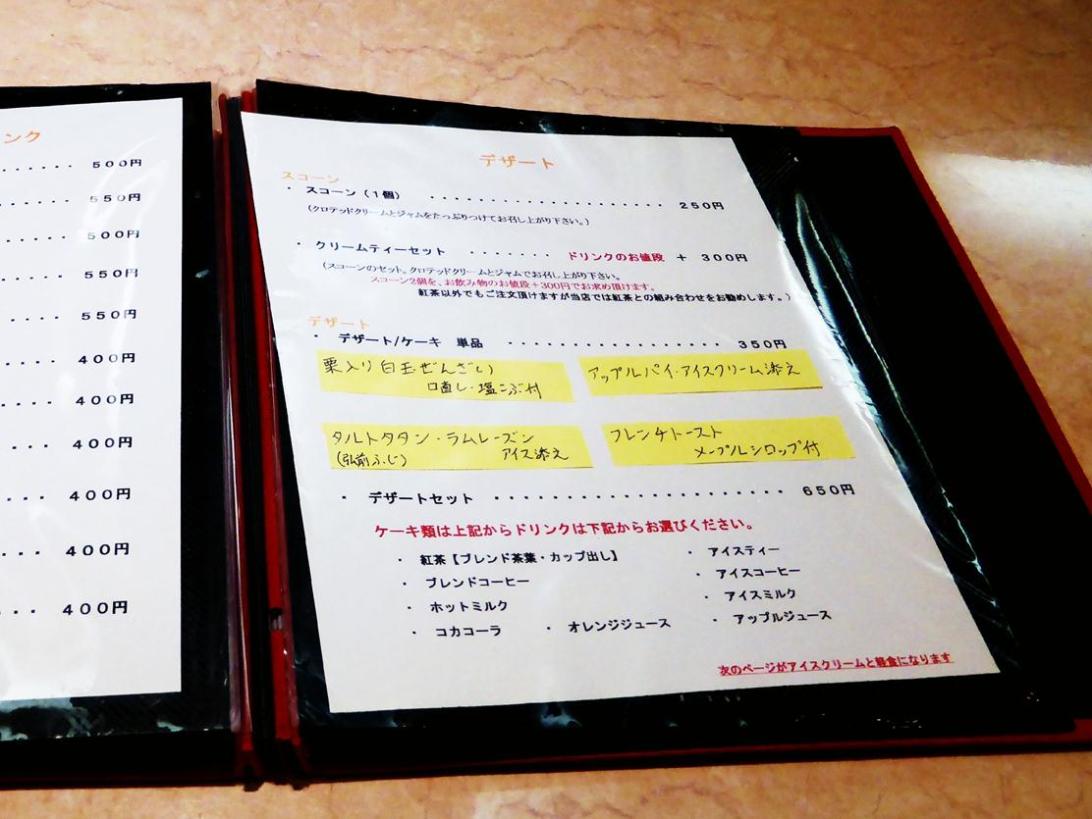 ンク
・・・・・・ 500円
550円
500円
550円
550円
400円
400円
400円
400円
400円
400円
デザート
スコーン
・ スコーン（1個） ・・・・・・・・・・・・・・・・・・・・ 250円
（クロテッドクリームとジャムをたっぷりつけてお召し上がり下さい。）
・ クリームティーセット ・・・・・・・ ドリンクのお値段 ＋ 300円
（スコーンのセット。クロテッドクリームとジャムでお召し上がり下さい。
スコーン2個を、お飲み物のお値段＋300円でお求め頂けます。
紅茶以外でもご注文頂けますが当店では紅茶との組み合わせをお勧めします。）
デザート
・ デザート/ケーキ 単品 ・・・・・・・・・・・・・・・・・・ 350円
栗入り白玉ぜんざい
口直し・塩こぶ付
アップルパイ・アイスクリーム添え
タルトタタン・ラムレーズン
（弘前ふじ） アイス添え
フレンチトースト
メープルシロップ付
・ デザートセット ・・・・・・・・・・・・・・・・・・・・・・ 650円
ケーキ類は上記からドリンクは下記からお選びください。
・ 紅茶【ブレンド茶葉・カップ出し】 ・ アイスティー
・ ブレンドコーヒー ・ アイスコーヒー
・ ホットミルク ・ アイスミルク
・ コカコーラ ・ オレンジジュース ・ アップルジュース
次のページがアイスクリームと軽食になります